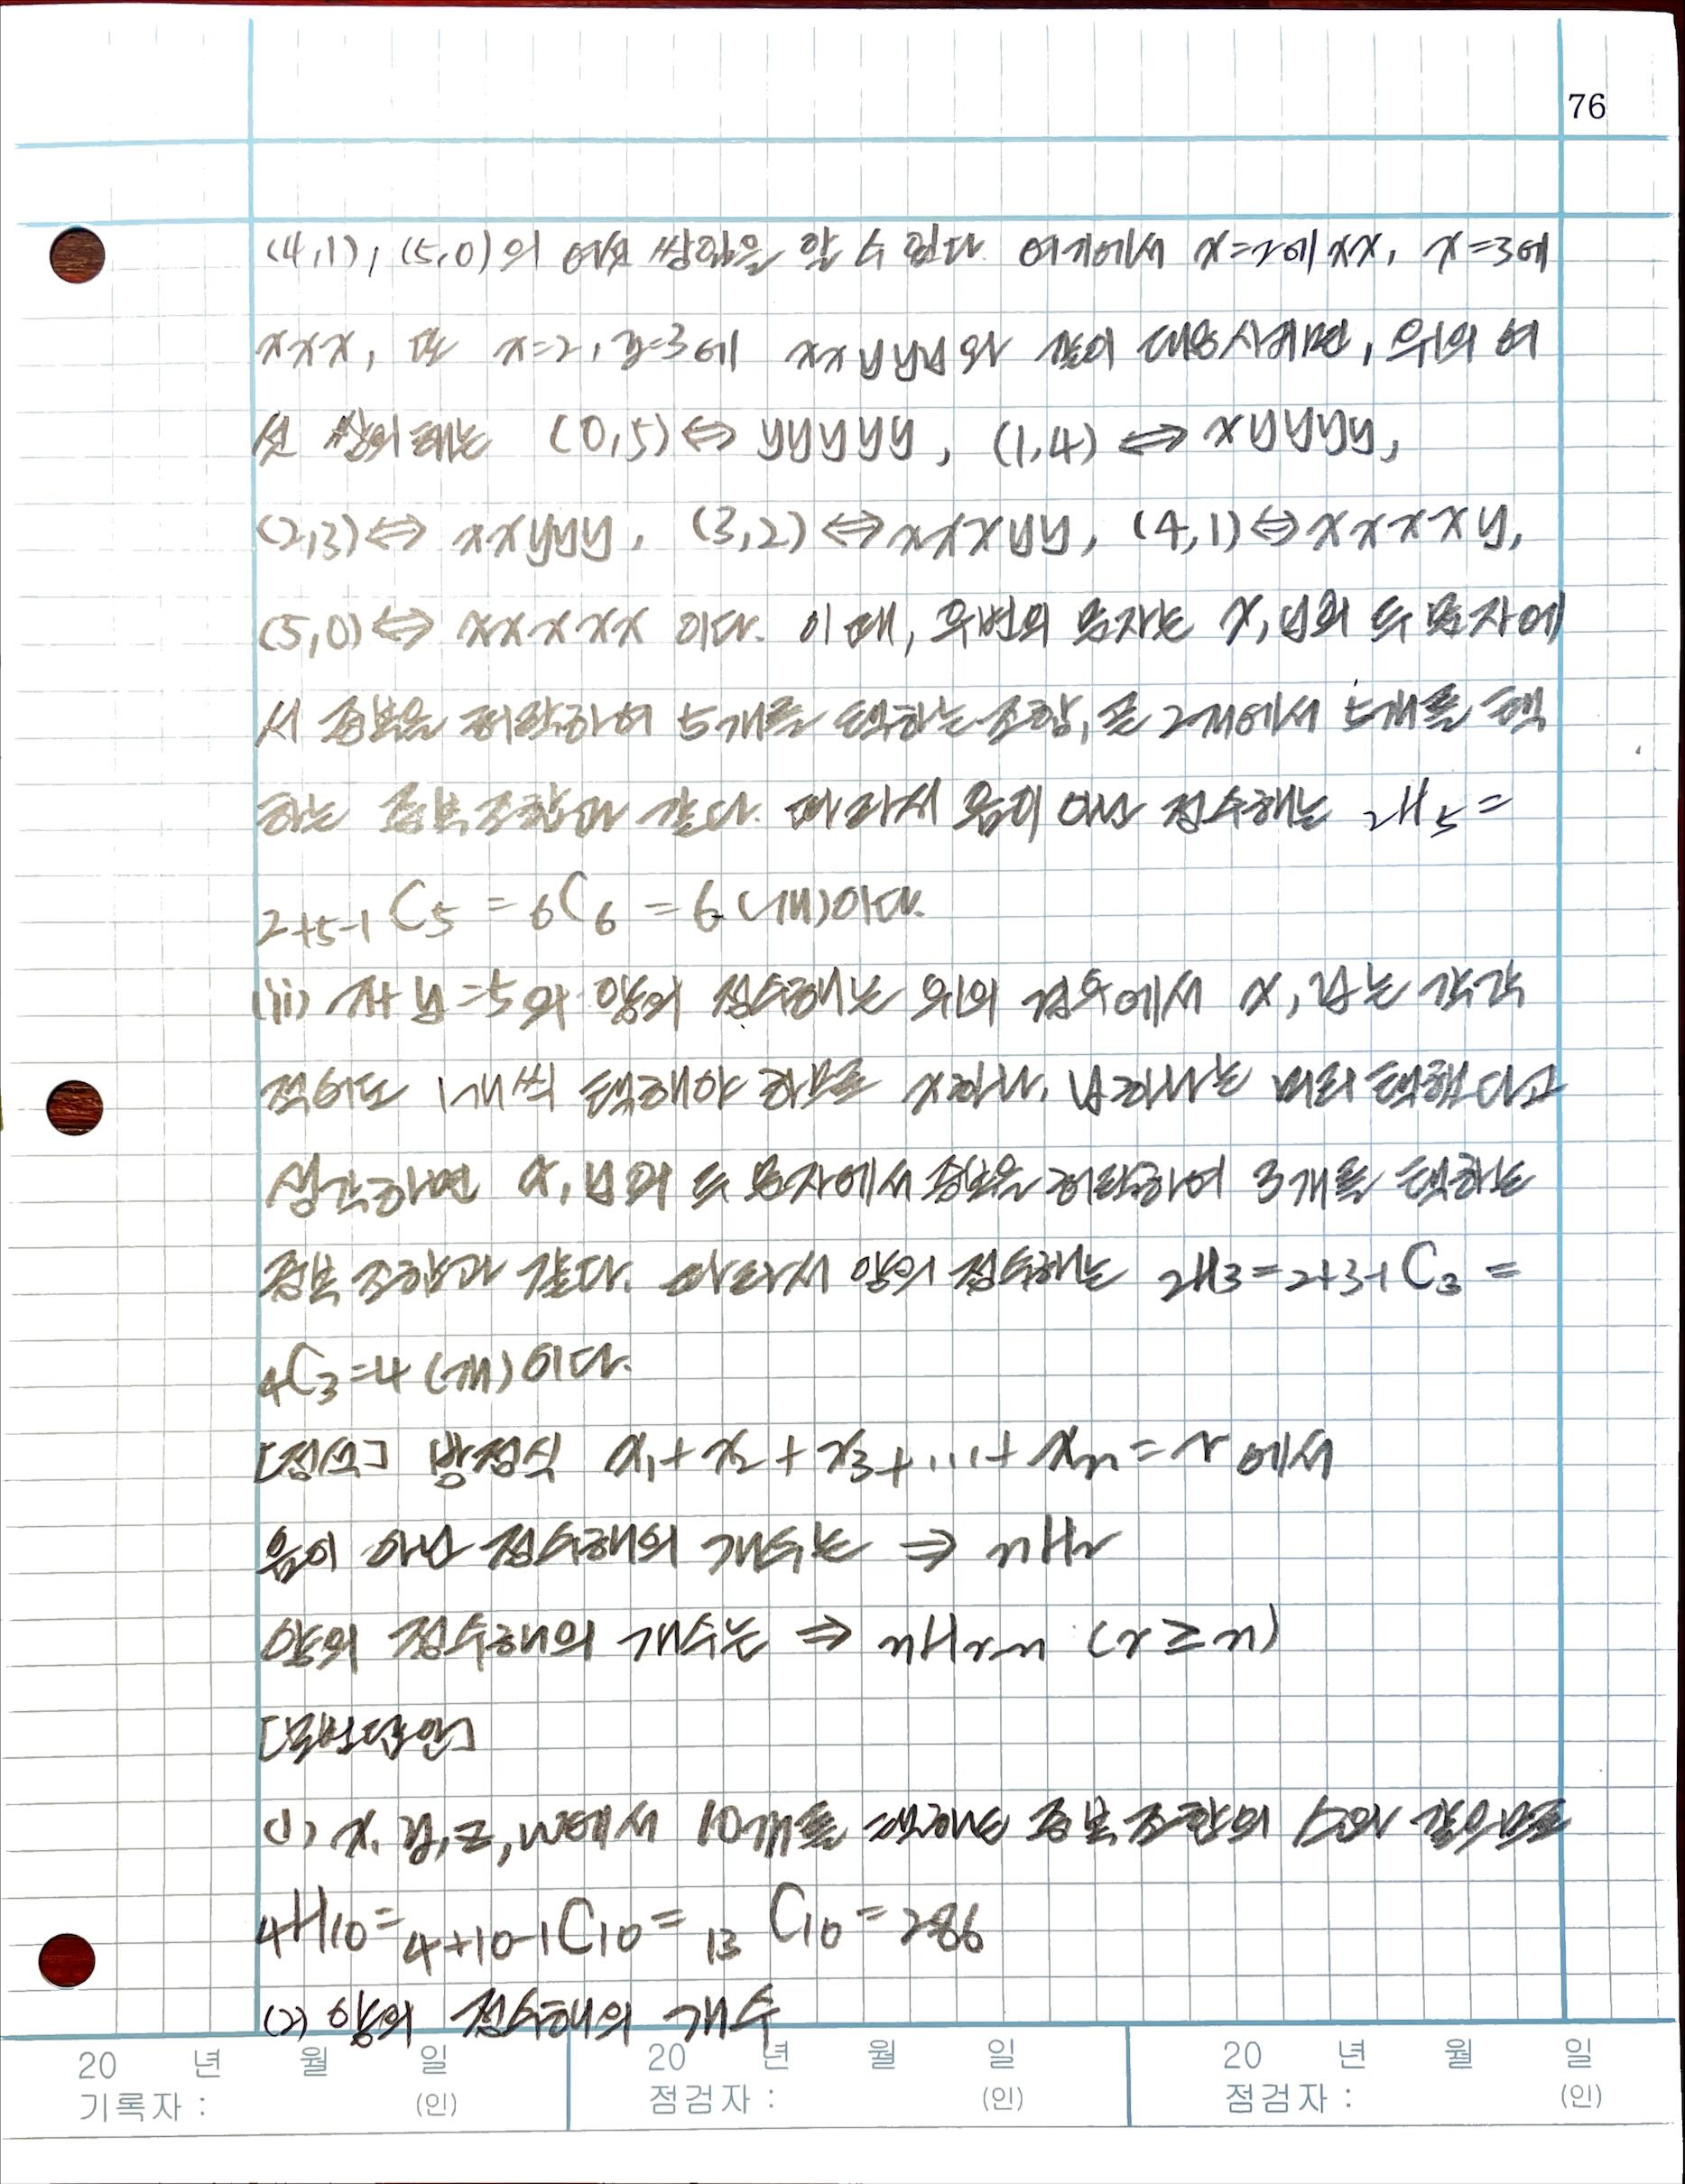 76
(4,1), (5,0)의 여섯 쌍임을 알 수 있다. 여기에서 x=2에 xx, x=3에
xxx, 또 x=2, y=3에 xxyyy와 같이 대응시키면, 위의 여
섯 쌍의 해는 (0,5)⇔yyyyy, (1,4)⇔xyyyy,
(2,3)⇔xxyyy, (3,2)⇔xxxyy, (4,1)⇔xxxxy,
(5,0)⇔xxxxx 이다. 이 때, 우변의 문자는 x, y의 두 문자에
서 중복을 허락하여 5개를 택하는 조합, 곧 2개에서 5개를 택
하는 중복조합과 같다. 따라서 음이 아닌 정수해는 ₂H₅=
₂₊₅₋₁C₅=₆C₆=6(개)이다.
(ii) x+y=5의 양의 정수해는 위의 경우에서 x, y는 각각
적어도 1개씩 택해야 하므로 x하나, y하나는 미리 택했다고
생각하면 x, y의 두 문자에서 중복을 허락하여 3개를 택하는
중복조합과 같다. 따라서 양의 정수해는 ₂H₃=₂₊₃₋₁C₃=
₄C₃=4(개)이다.
[정석] 방정식 x₁+x₂+x₃+...+xₙ=r에서
음이 아닌 정수해의 개수는 ⇒ ₙHᵣ
양의 정수해의 개수는 ⇒ ₙHᵣ₋ₙ (r≥n)
[모범답안]
(1) x, y, z, w에서 10개를 택하는 중복조합의 수와 같으므로
₄H₁₀=₄₊₁₀₋₁C₁₀=₁₃C₁₀=286
(2) 양의 정수해의 개수
20 년 월 일 20 년 월 일 20 년 월 일
기록자 : (인) 점검자 : (인) 점검자 : (인)